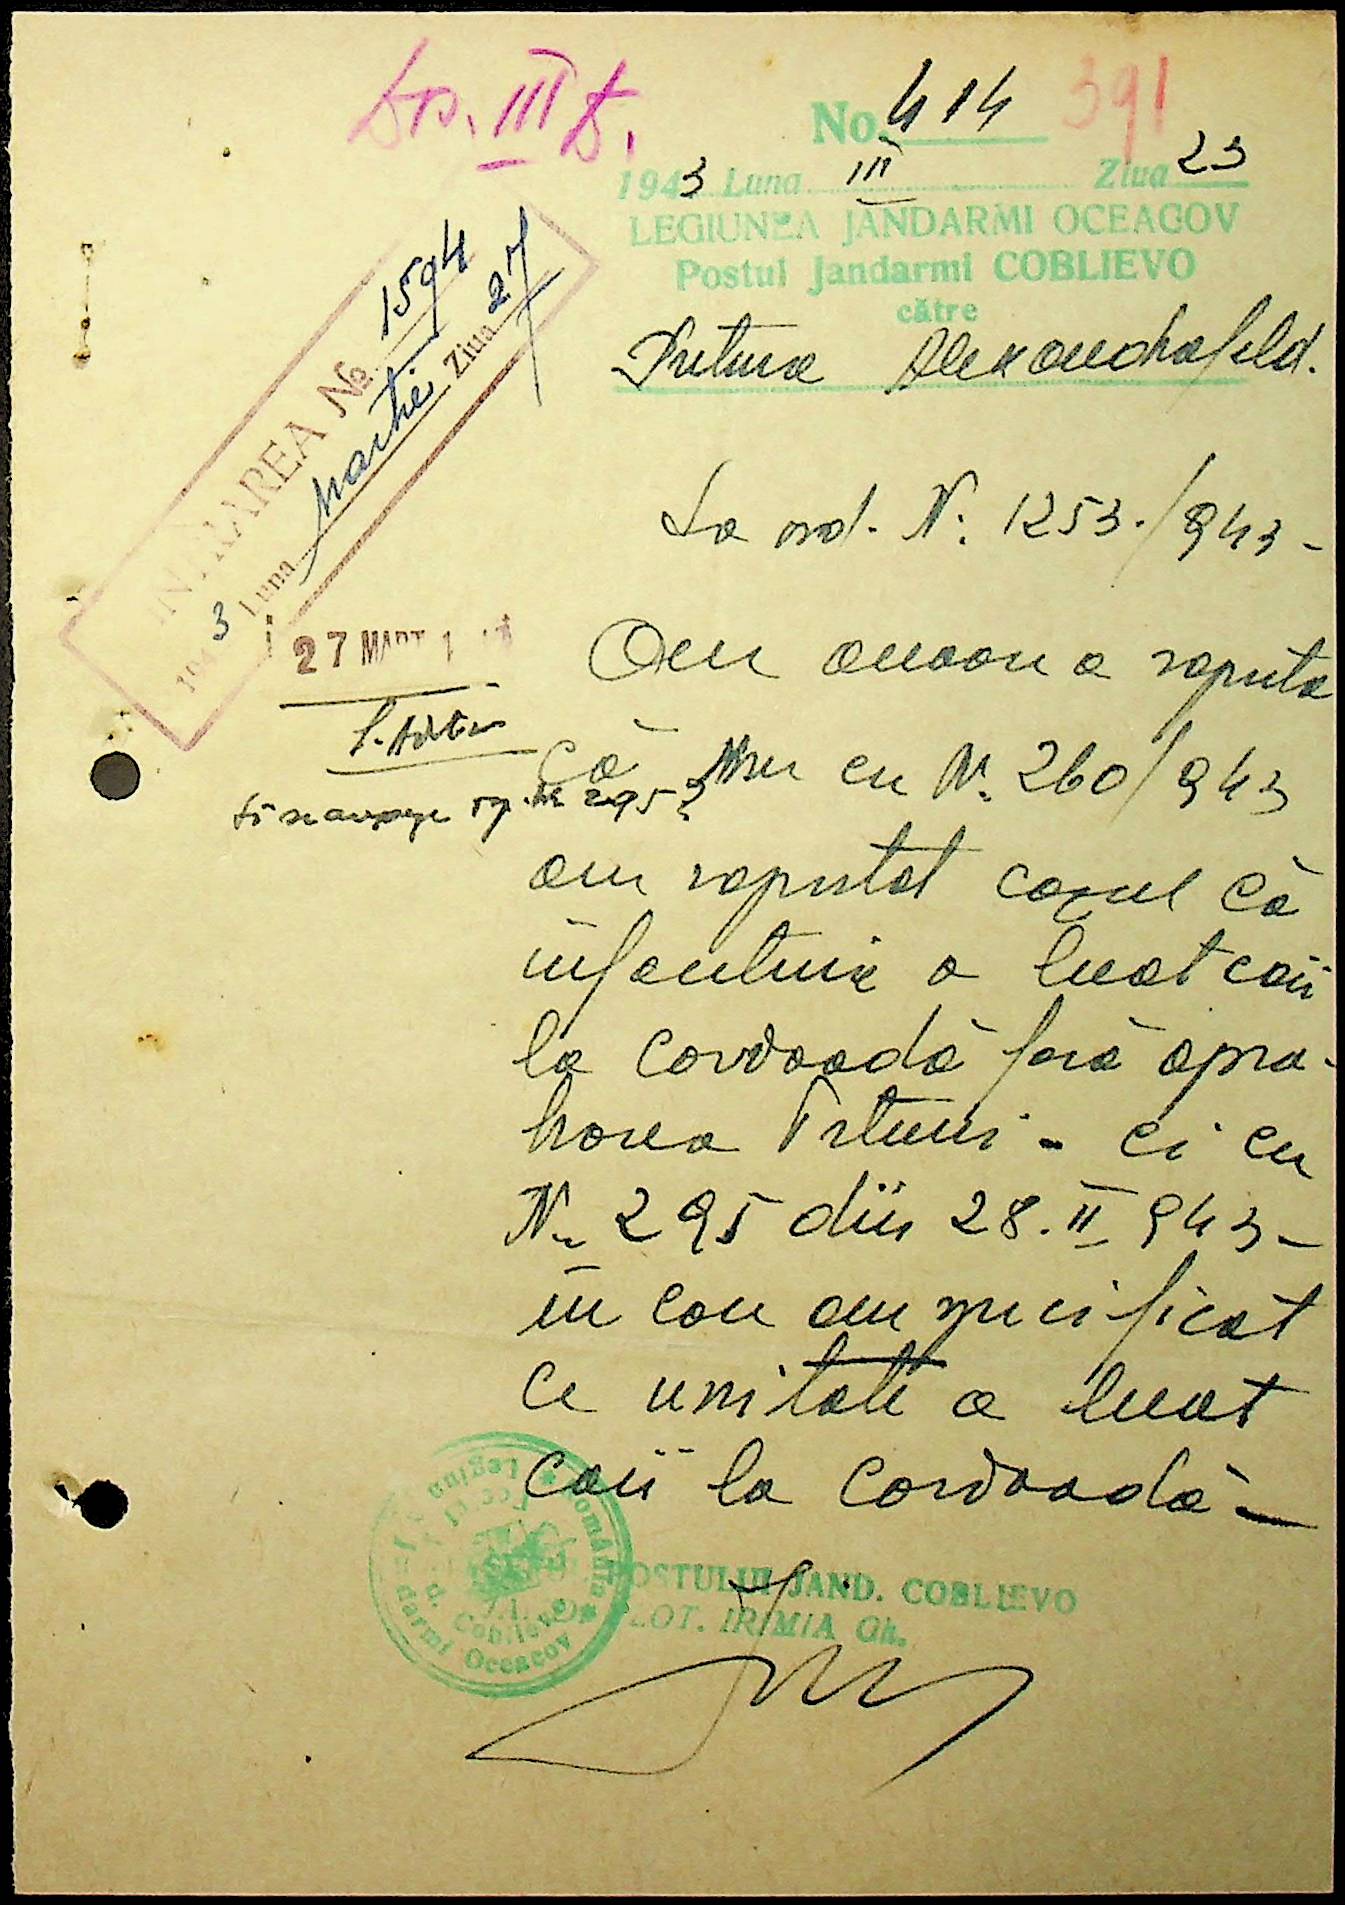 Dos. III D.
391
No. 414
1943 Luna III Ziua 23
LEGIUNEA JANDARMI OCEACOV
Postul Jandarmi COBLIEVO
către
Pretura Alexandrafeld.
INTRAREA No. 1594
1943 Luna Martie Ziua 27
27 MART 1
La ord. N: 1253./943-
Am onoare a raporta
că cu N. 260/943
am raportat cazul că
infanteria a luat caii
la corvoadă fară apro-
barea Preturii - ci cu
N. 295 din 28.II 943-
în care am specificat
ce unitate a luat
caii la corvoadă-
POSTULUI JAND. COBLIEVO
PLOT. IRIMIA Gh.
România
Legiunea Jandarmi Oceacov
Coblievo